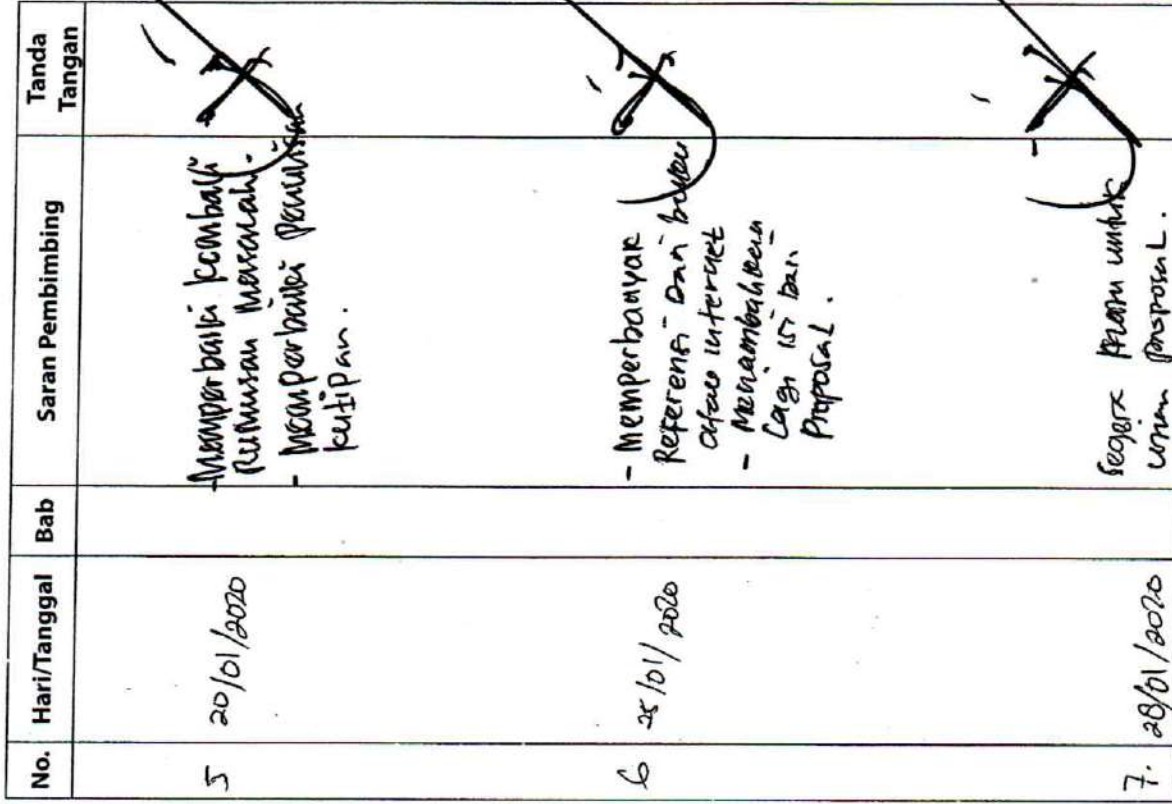 No. Hari/Tanggal Bab Saran Pembimbing Tanda Tangan
5 20/01/2020
- Memperbaiki kembali
Rumusan masalah.
- memperbaiki penulisan
kutipan.
6 25/01/2020
- Memperbanyak
Referensi Dari buku
atau internet
- Menambahkan
Lagi isi Dari
Proposal.
7. 28/01/2020
Segera untuk
ujian proposal.